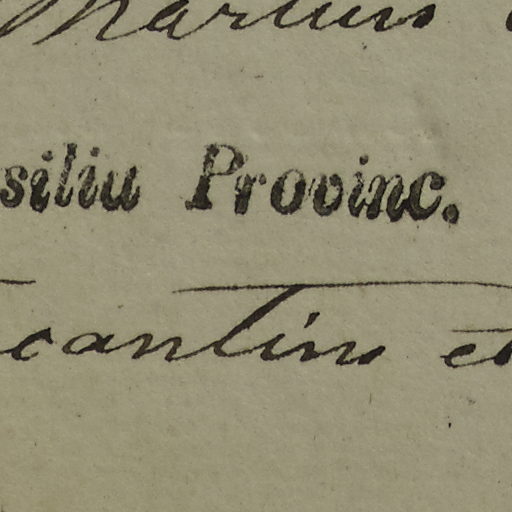 Martius
siliu Provinc.
cantins et